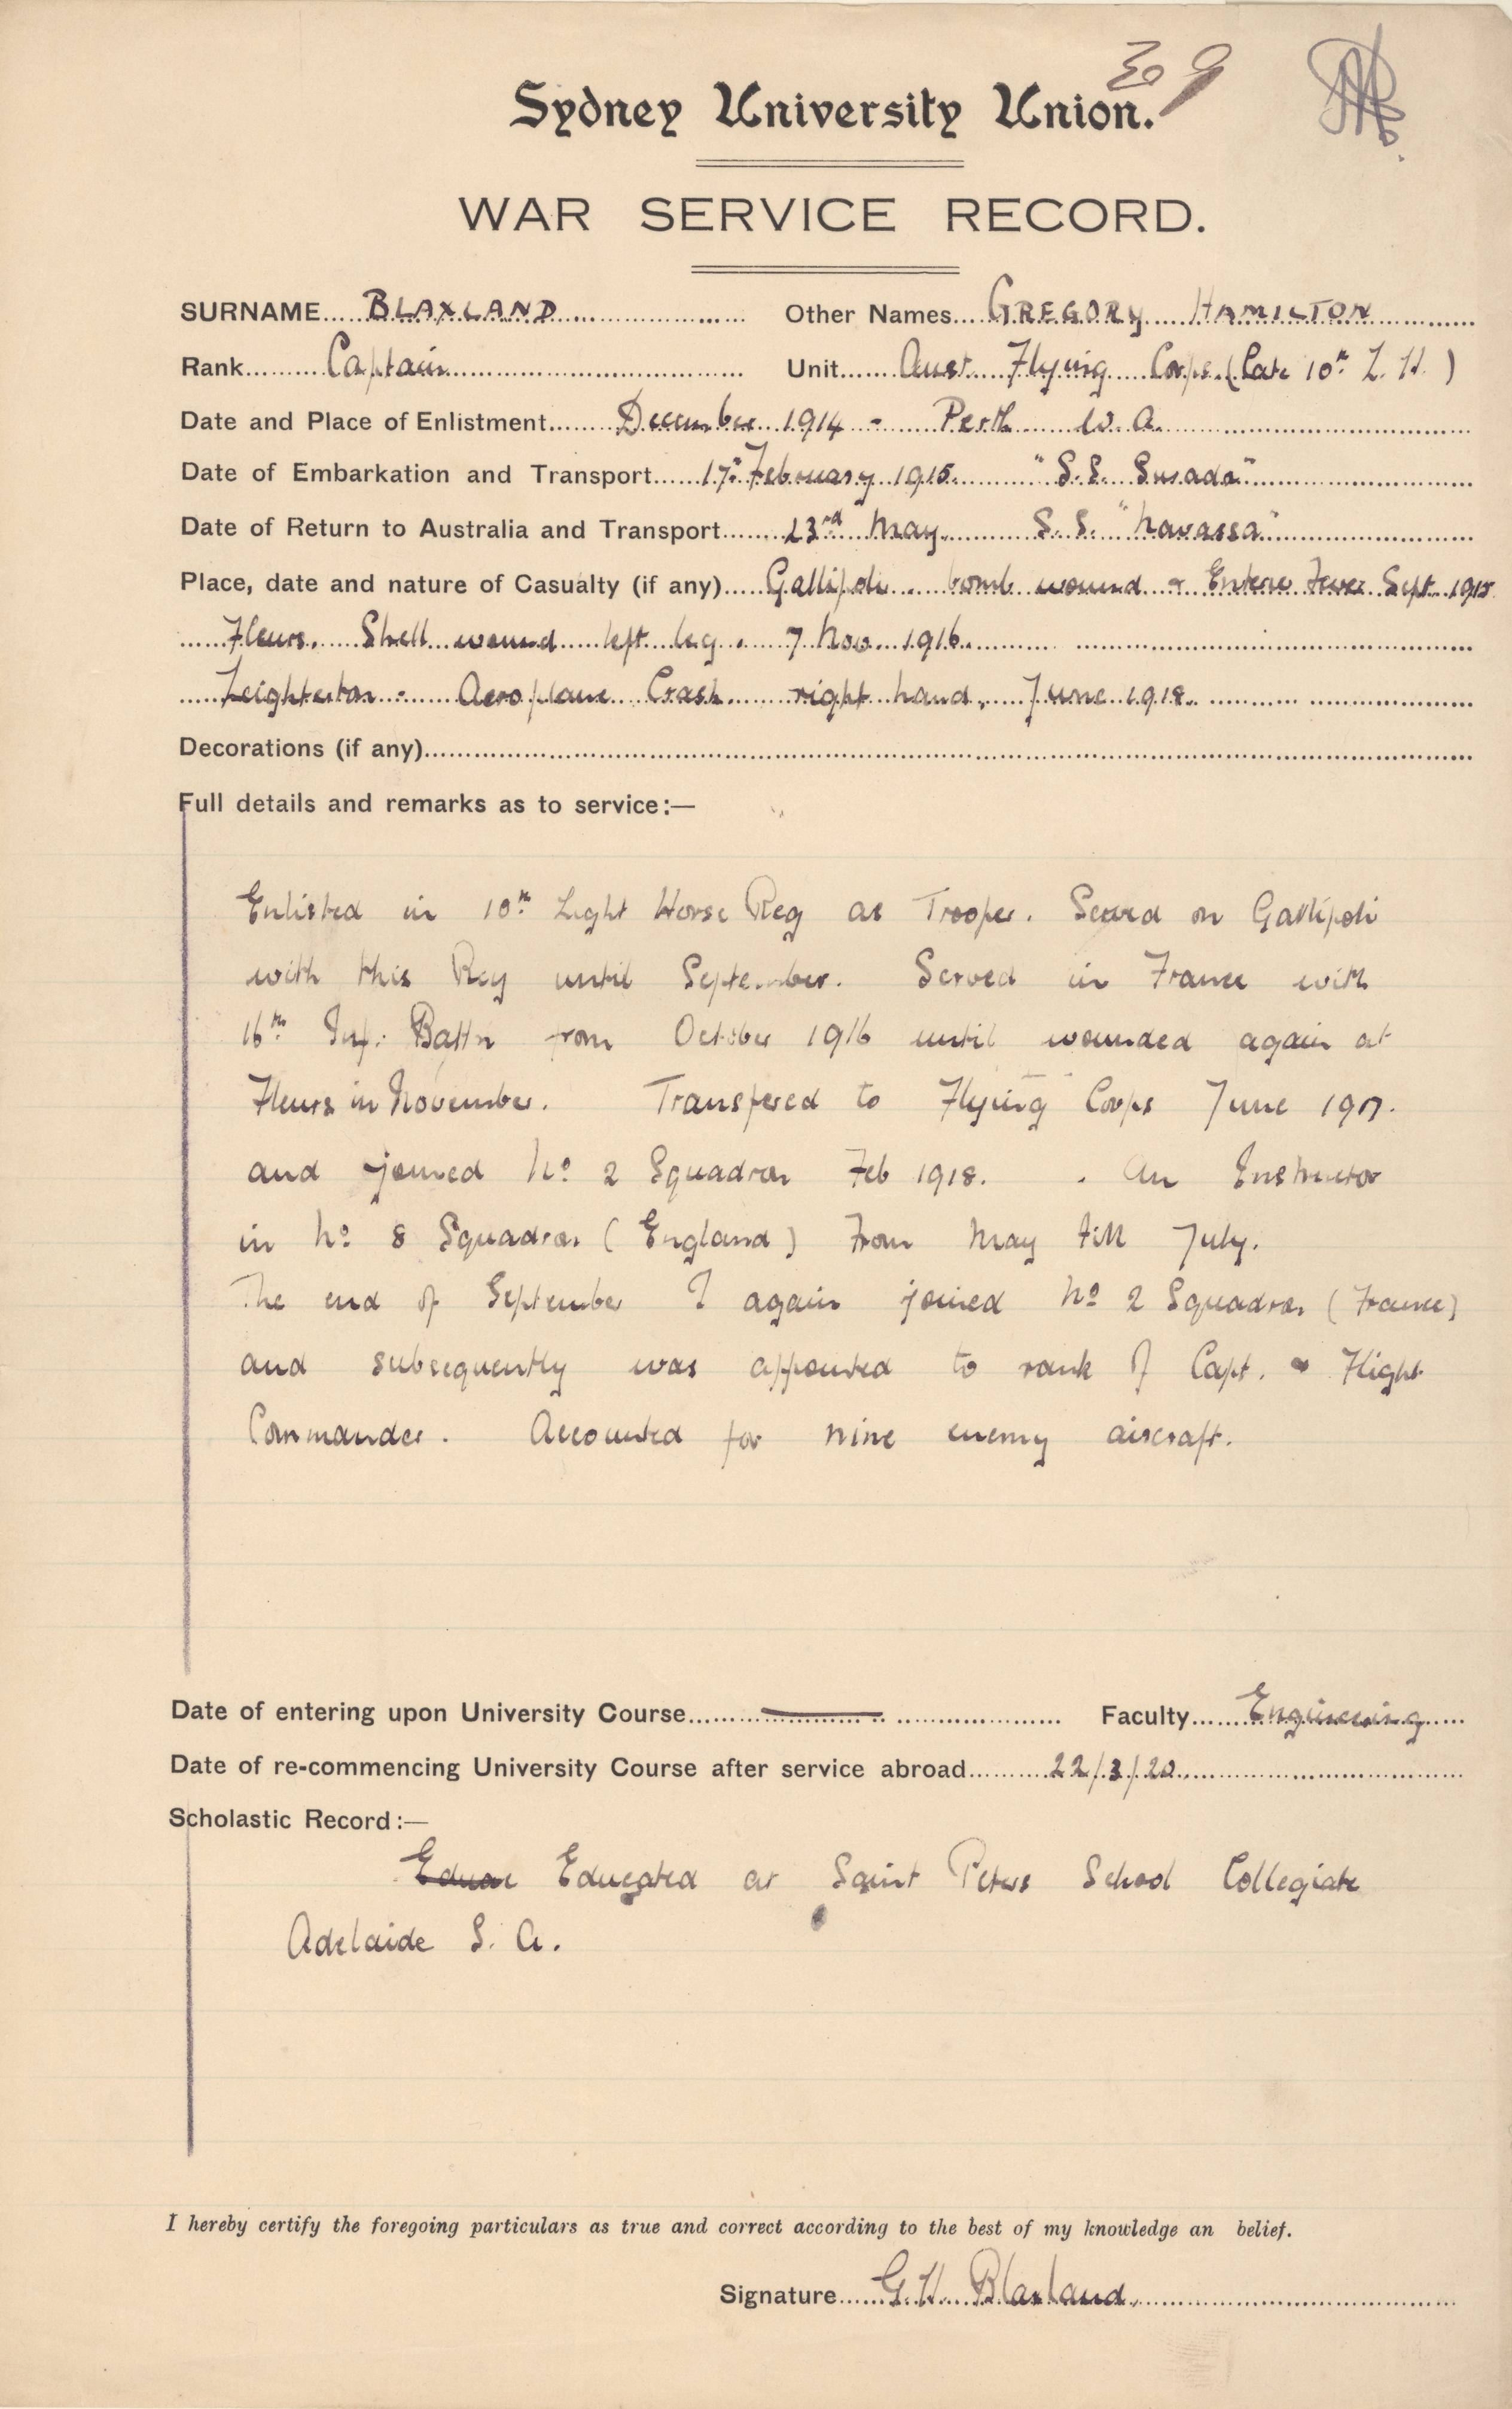 Sydney University Union.
WAR SERVICE RECORD.
SURNAME BLAXLAND Other Names GREGORY HAMILTON
Rank Captain Unit Aust. Flying Corps (Late 10th L. H.)
Date and Place of Enlistment December 1914 - Perth W. A.
Date of Embarkation and Transport 17th February 1915. "S.S. Surada"
Date of Return to Australia and Transport 23rd May S.S. "Navassa"
Place, date and nature of Casualty (if any) Gallipoli. bomb wound & Enteric Fever Sept. 1915
Fleurs. Shell wound left leg. 7 Nov. 1916.
Leighterton - Aeroplane Crash right hand, June 1918.
Decorations (if any)
Full details and remarks as to service:—
Enlisted in 10th Light Horse Reg as Trooper. Served on Gallipoli
with this Reg until September. Served in France with
16th Inf. Battn from October 1916 until wounded again at
Fleurs in November. Transfered to Flying Corps June 1917.
and joined No 2 Squadron Feb 1918. . An Instructor
in No 8 Squadron (England) From May till July.
The end of September I again joined No 2 Squadron (France)
and subsequently was appointed to rank of Capt. & Flight
Commander. Accounted for nine enemy aircraft.
Date of entering upon University Course — Faculty Engineering
Date of re-commencing University Course after service abroad 22/3/20
Scholastic Record:—
Educated at Saint Peters School Collegiate
Adelaide S. A.
I hereby certify the foregoing particulars as true and correct according to the best of my knowledge an belief.
Signature G. H. Blaxland